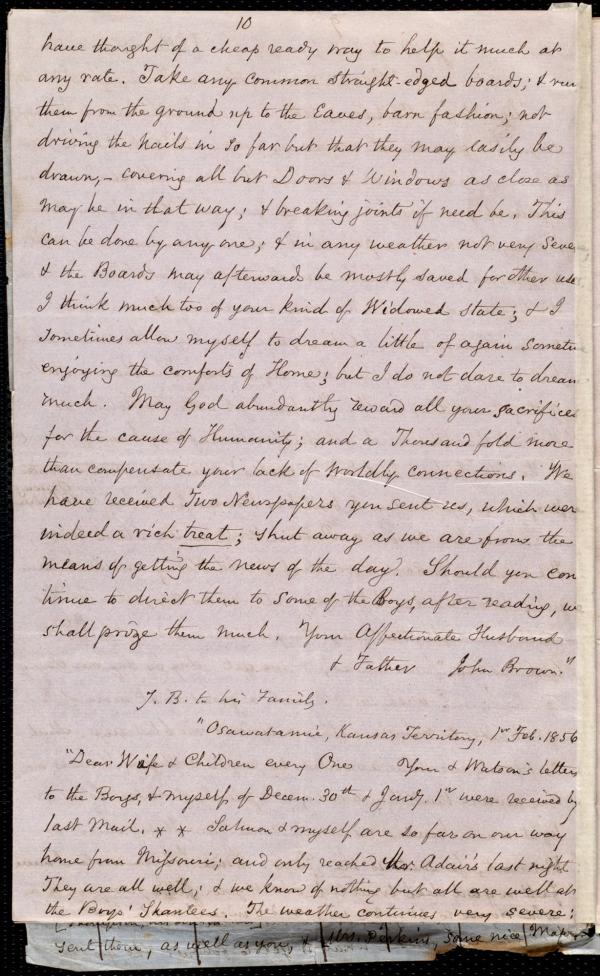 10
have thought of a cheap ready way to help it much at
any rate. Take any common straight-edged boards; & run
them from the ground up to the Eaves, barn fashion; not
driving the nails in so far but that they may easily be
drawn, - covering all but Doors & Windows as close as
may be in that way; & breaking joints if need be. This
can be done by any one; & in any weather not very Seve
& the Boards may afterwards be mostly saved for other use
I think much too of your kind of Widowed state; & I
sometimes allow myself to dream a little of again someti
enjoying the comforts of Home; but I do not dare to dream
much. May God abundantly reward all your sacrifices
for the cause of Humanity; and a Thousand fold more
than compensate your lack of worldly connections. We
have received Two Newspapers you sent us, which wer
indeed a rich treat; shut away as we are from the
means of getting the news of the day. Should you con
tinue to direct them to some of the Boys, after reading, we
shall prize them much. "Your Affectionate Husband
& Father John Brown."
J. B. to his Family.
"Osawatamie, Kansas Territory, 1st Feb. 1856
"Dear Wife & Children every One Your & Watson's letters
to the Boys, & myself of Decem. 30th & Jany. 1st were received by
last Mail. * * Salmon & myself are so far on our way
home from Missouri; and only reached Mr. Adair's last night
They are all well; & we know of nothing but all are well at
the Boys' Shantees. The weather continues very severe;
sent them, as well as you, & Mrs. Perkins, some nice